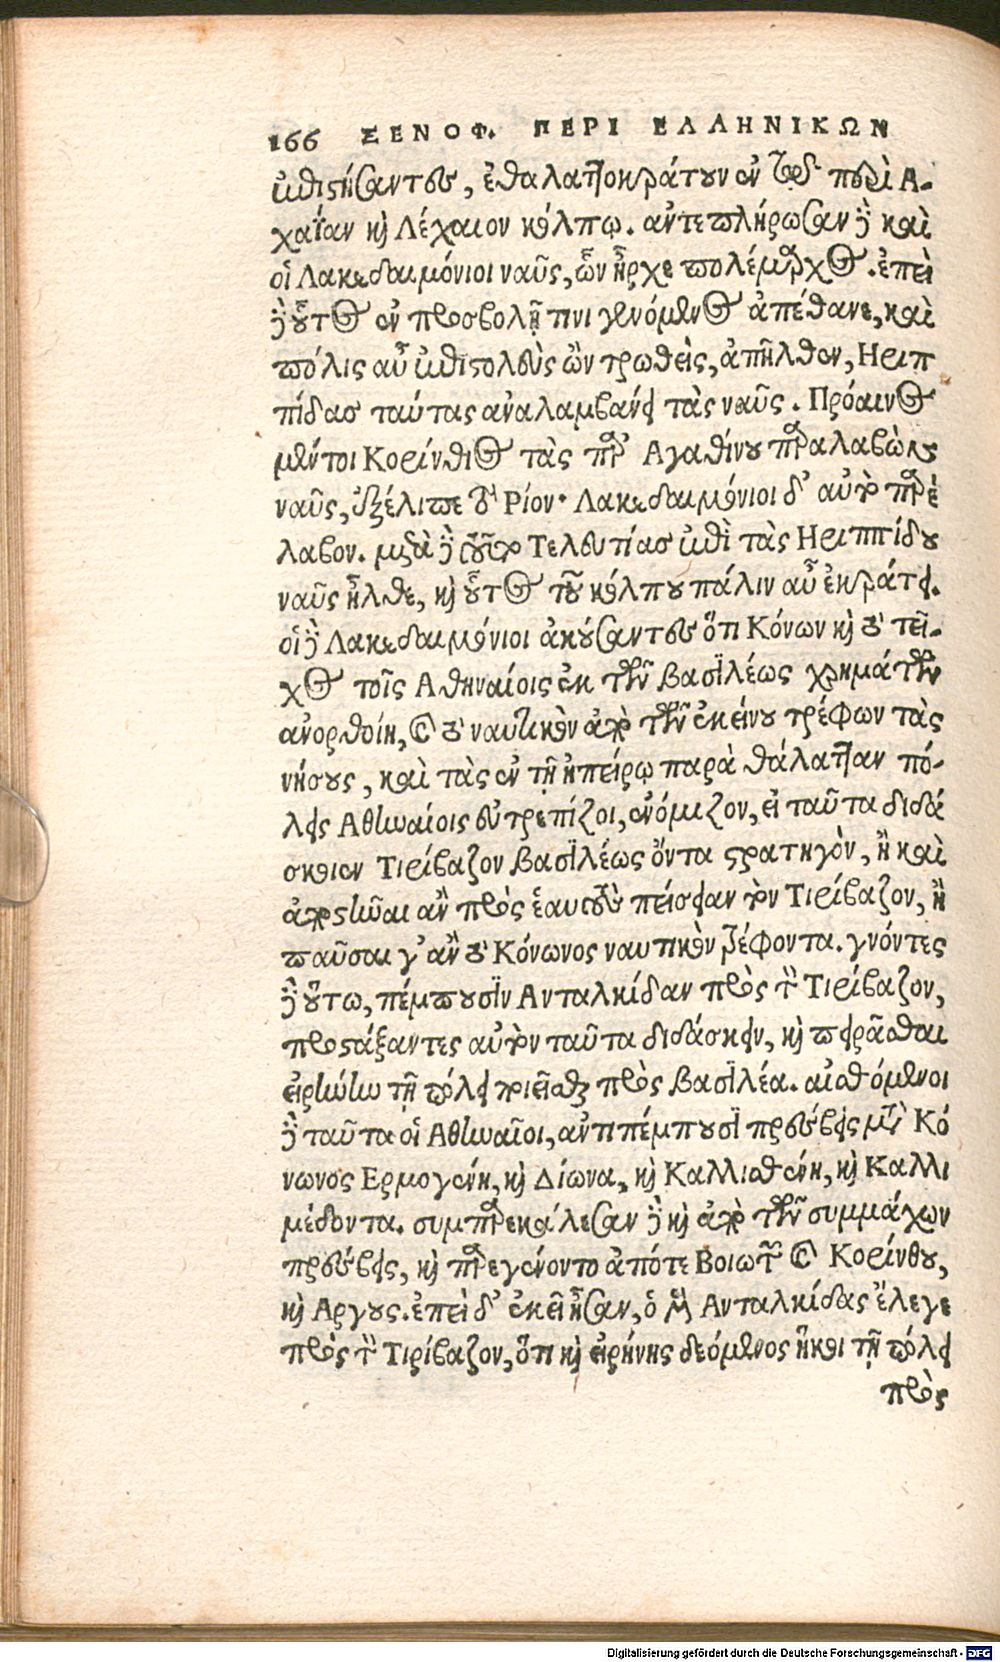 166 ΞΕΝΟΦ. ΠΕΡΙ ΕΛΛΗΝΙΚΩΝ
ἐπιστήσαντες, ἐθαλαττοκράτουν ἐν περὶ Α-
χαΐαν καὶ Λέχαιον κόλπῳ. ἀντεπλήρωσαν δὲ καὶ
οἱ Λακεδαιμόνιοι ναῦς, ὧν ἦρχε πολέμαρχος. ἐπεὶ
δὲ οὗτος ἐν προσβολῇ τινι γενόμενος ἀπέθανε, καὶ
πόλις αὖ ἐπιστολεὺς ὢν τρωθεὶς, ἀπῆλθεν, Ηριπ
πίδας ταύτας ἀναλαμβάνει τὰς ναῦς. Πρόαινος
μέντοι Κορίνθιος τὰς παρ’ Αγαθίνου παραλαβὼν
ναῦς, ἐξέλιπε τὸ Ρίον· Λακεδαιμόνιοι δ’ αὐτὸ παρέ
λαβον. μετὰ δὲ τοῦτον Τελευτίας ἐπὶ τὰς Ηριππίδου
ναῦς ἦλθε, καὶ οὗτος τοῦ κόλπου πάλιν αὖ ἐκράτει.
οἱ δὲ Λακεδαιμόνιοι ἀκούσαντες ὅτι Κόνων καὶ τὸ τεῖ-
χος τοῖς Αθηναίοις ἐκ τῶν βασιλέως χρημάτων
ἀνορθοίη, καὶ τὸ ναυτικὸν ἀπὸ τῶν ἐκείνου τρέφων τὰς
νήσους, καὶ τὰς ἐν τῇ ἠπείρῳ παρὰ θάλατταν πό-
λεις Αθηναίοις εὐτρεπίζοι, ἐνόμιζον, εἰ ταῦτα διδά
σκοιεν Τιρίβαζον βασιλέως ὄντα στρατηγὸν, ἢ καὶ
ἀποστῆναι ἂν πρὸς ἑαυτοὺς πείσειαν τὸν Τιρίβαζον, ἢ
παῦσαι γ’ ἂν τὸ Κόνωνος ναυτικὸν τρέφοντα. γνόντες
δὲ οὕτω, πέμπουσιν Ανταλκίδαν πρὸς τὸν Τιρίβαζον,
προστάξαντες αὐτὸν ταῦτα διδάσκειν, καὶ πειρᾶσθαι
εἰρήνην τῇ πόλει ποιεῖσθαι πρὸς βασιλέα. αἰσθόμενοι
δὲ ταῦτα οἱ Αθηναῖοι, ἀντιπέμπουσι πρέσβεις μετὰ Κό
νωνος Ερμογένη, καὶ Δίωνα, καὶ Καλλισθένη, καὶ Καλλι
μέδοντα. συμπαρεκάλεσαν δὲ καὶ ἀπὸ τῶν συμμάχων
πρέσβεις, καὶ παρεγένοντο ἀπότε Βοιωτῶν καὶ Κορίνθου,
καὶ Αργους. ἐπεὶ δ’ ἐκεῖ ἦσαν, ὁ μὲν Ανταλκίδας ἔλεγε
πρὸς τὸν Τιρίβαζον, ὅτι καὶ εἰρήνης δεόμενος ἥκοι τῇ πόλει
πρὸς
Digitalisierung gefördert durch die Deutsche Forschungsgemeinschaft - DFG